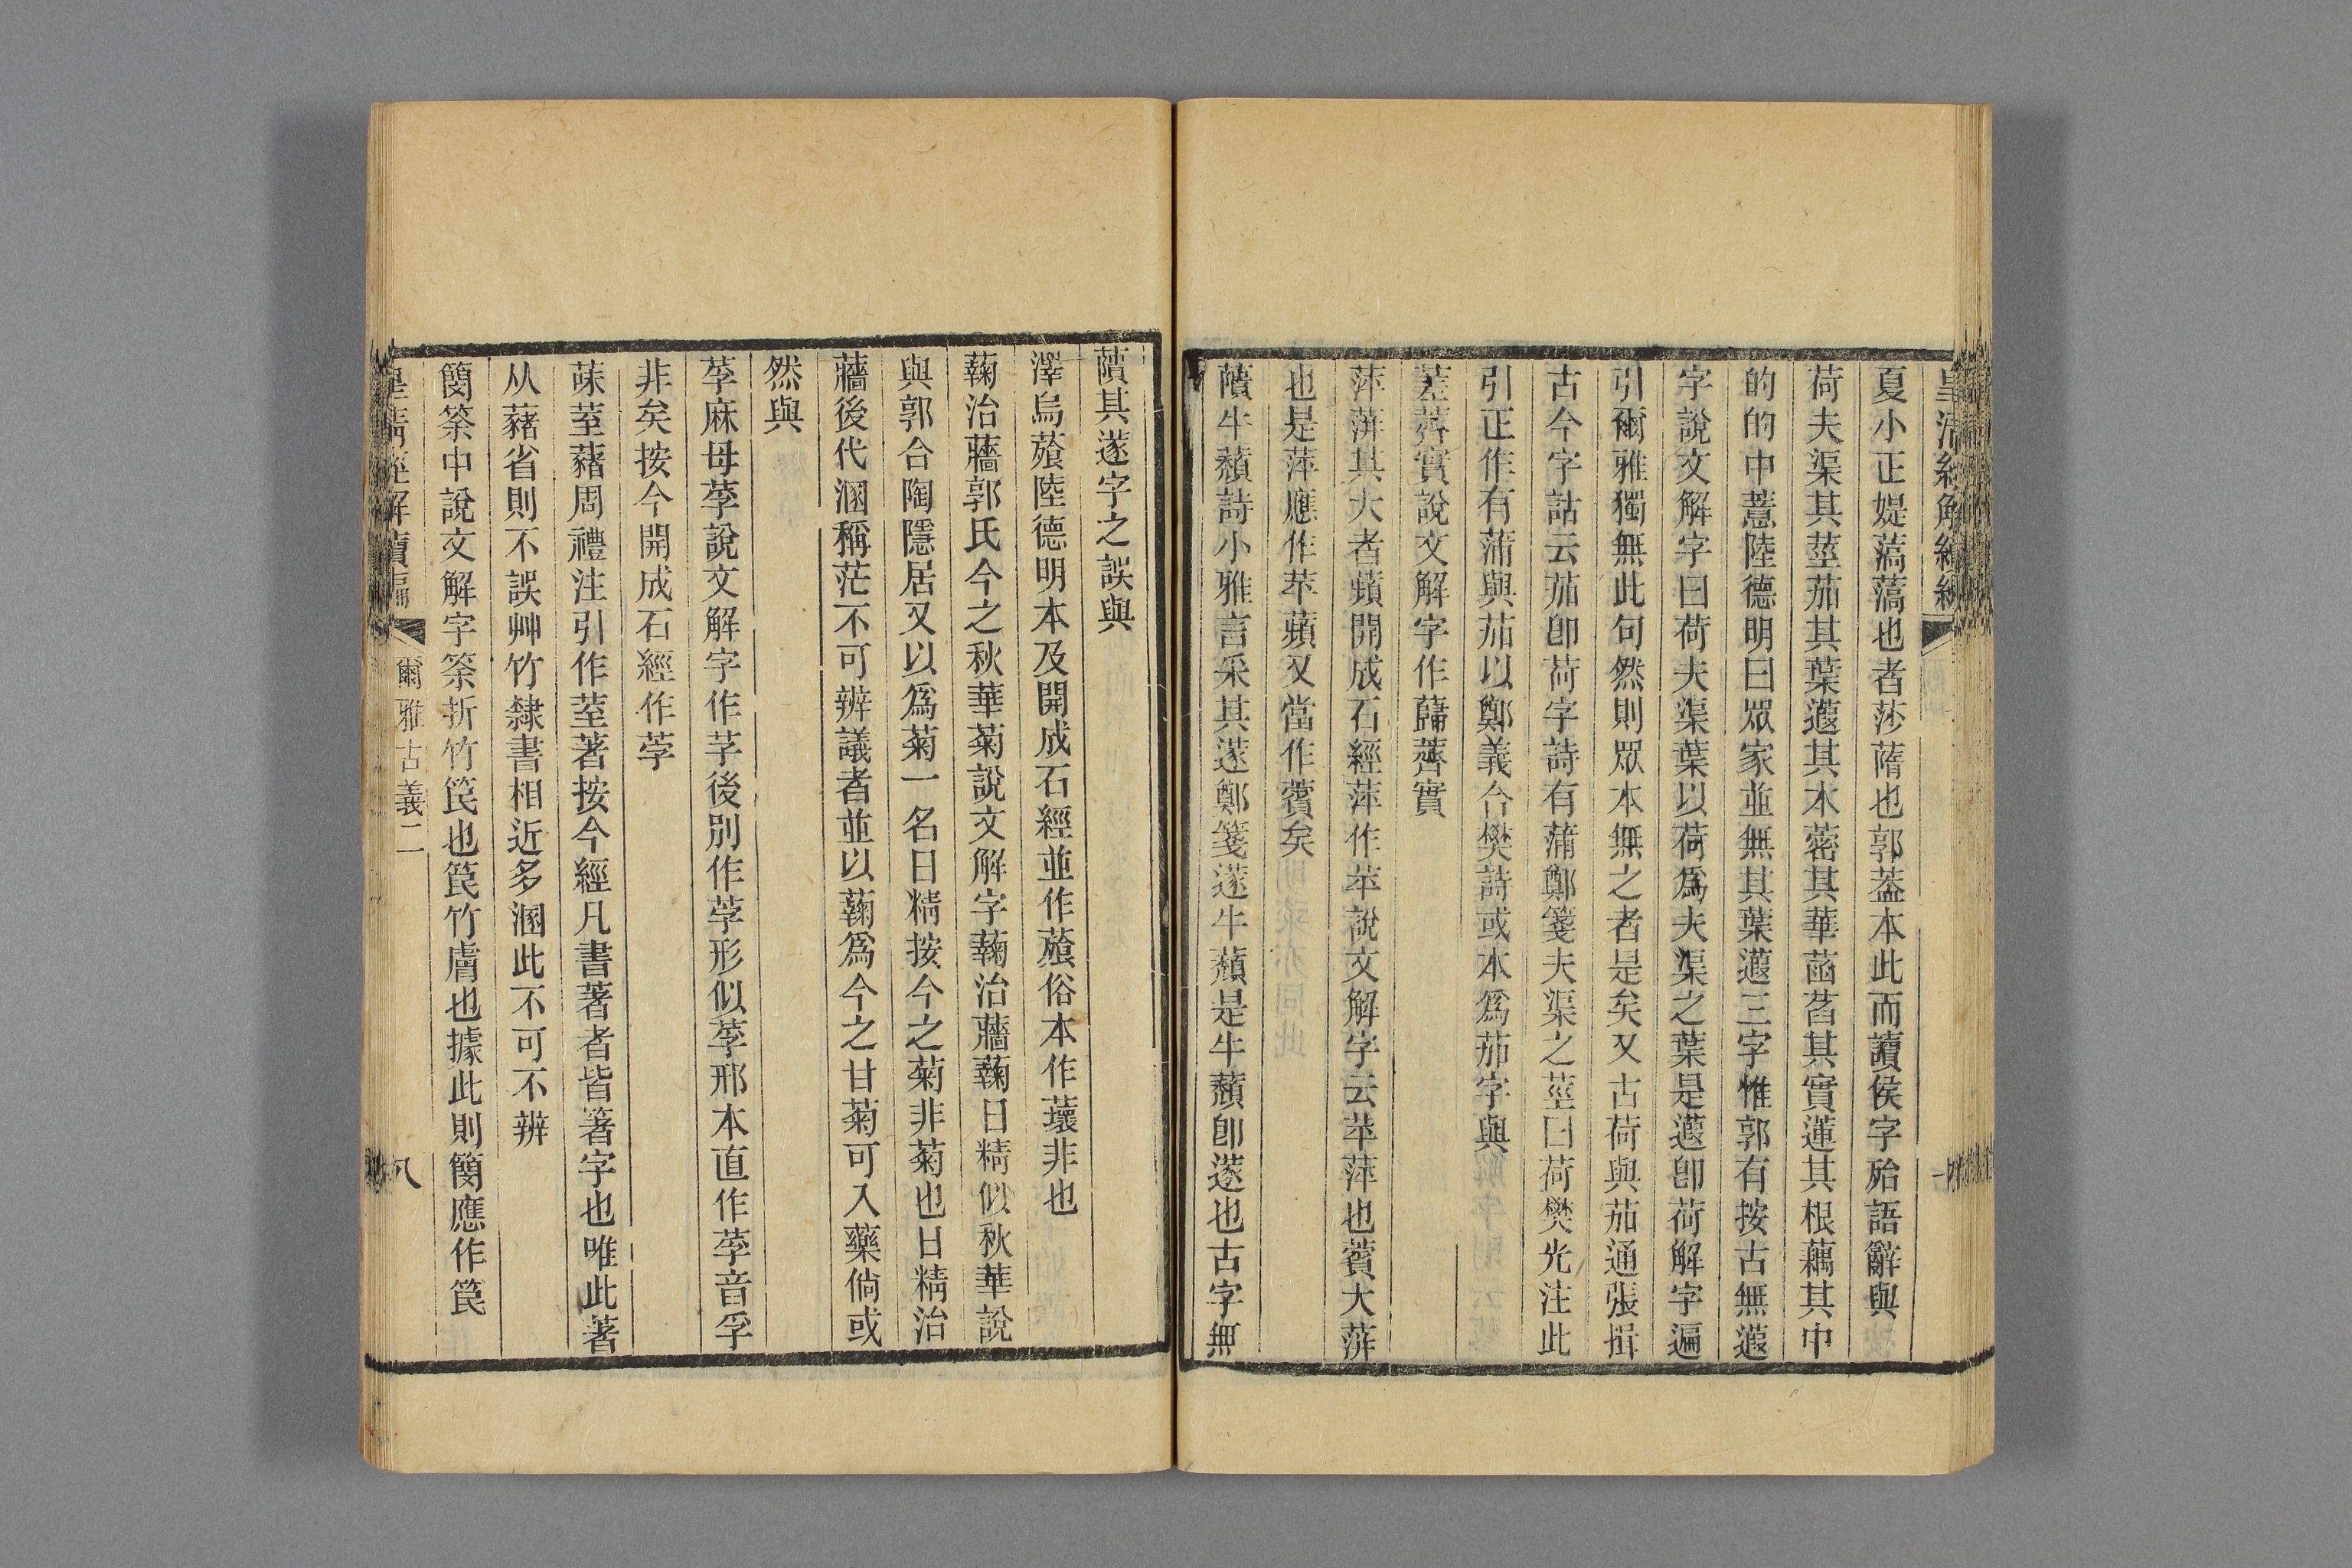 皇清經解續編
夏小正媞蒿蒿也者莎蓨也郭葢本此而讀侯字殆語辭與
荷夫渠其莖茄其葉蕸其本蔤其華菡萏其實蓮其根藕其中
的的中薏陸德明曰眾家並無其葉蕸三字惟郭有按古無蕸
字說文解字曰荷夫渠葉以荷爲夫渠之葉是蕸卽荷解字遍
引爾雅獨無此句然則眾本無之者是矣又古荷與茄通張揖
古今字詁云茄卽荷字詩有蒲鄭箋夫渠之莖曰荷樊光注此
引正作有蒲與茄以鄭義合樊詩或本爲茄字與
蒫薺實說文解字作齹薺實
萍蓱其大者蘋開成石經萍作苹說文解字云苹萍也薲大蓱
也是萍應作苹蘋又當作薲矣
藬牛蘈詩小雅言采其蓫鄭箋蓫牛蘈是牛蘈卽蓫也古字無
藬其蓫字之誤與
澤烏蕵陸德明本及開成石經並作蕵俗本作蘾非也
蘜治蘠郭氏今之秋華菊說文解字蘜治蘠蘜日精似秋華說
與郭合陶隱居又以爲菊一名日精按今之菊非菊也日精治
蘠後代溷稱茫不可辨議者並以蘜爲今之甘菊可入藥倘或
然與
荸麻母荸說文解字作芓後別作荸形似荸邢本直作荸音孚
非矣按今開成石經作荸
菋荎藸周禮注引作荎著按今經凡書著者皆箸字也唯此著
从藸省則不誤艸竹隸書相近多溷此不可不辨
簢筡中說文解字筡折竹笢也笢竹膚也據此則簢應作笢
皇清經解續編
爾雅古義二
八